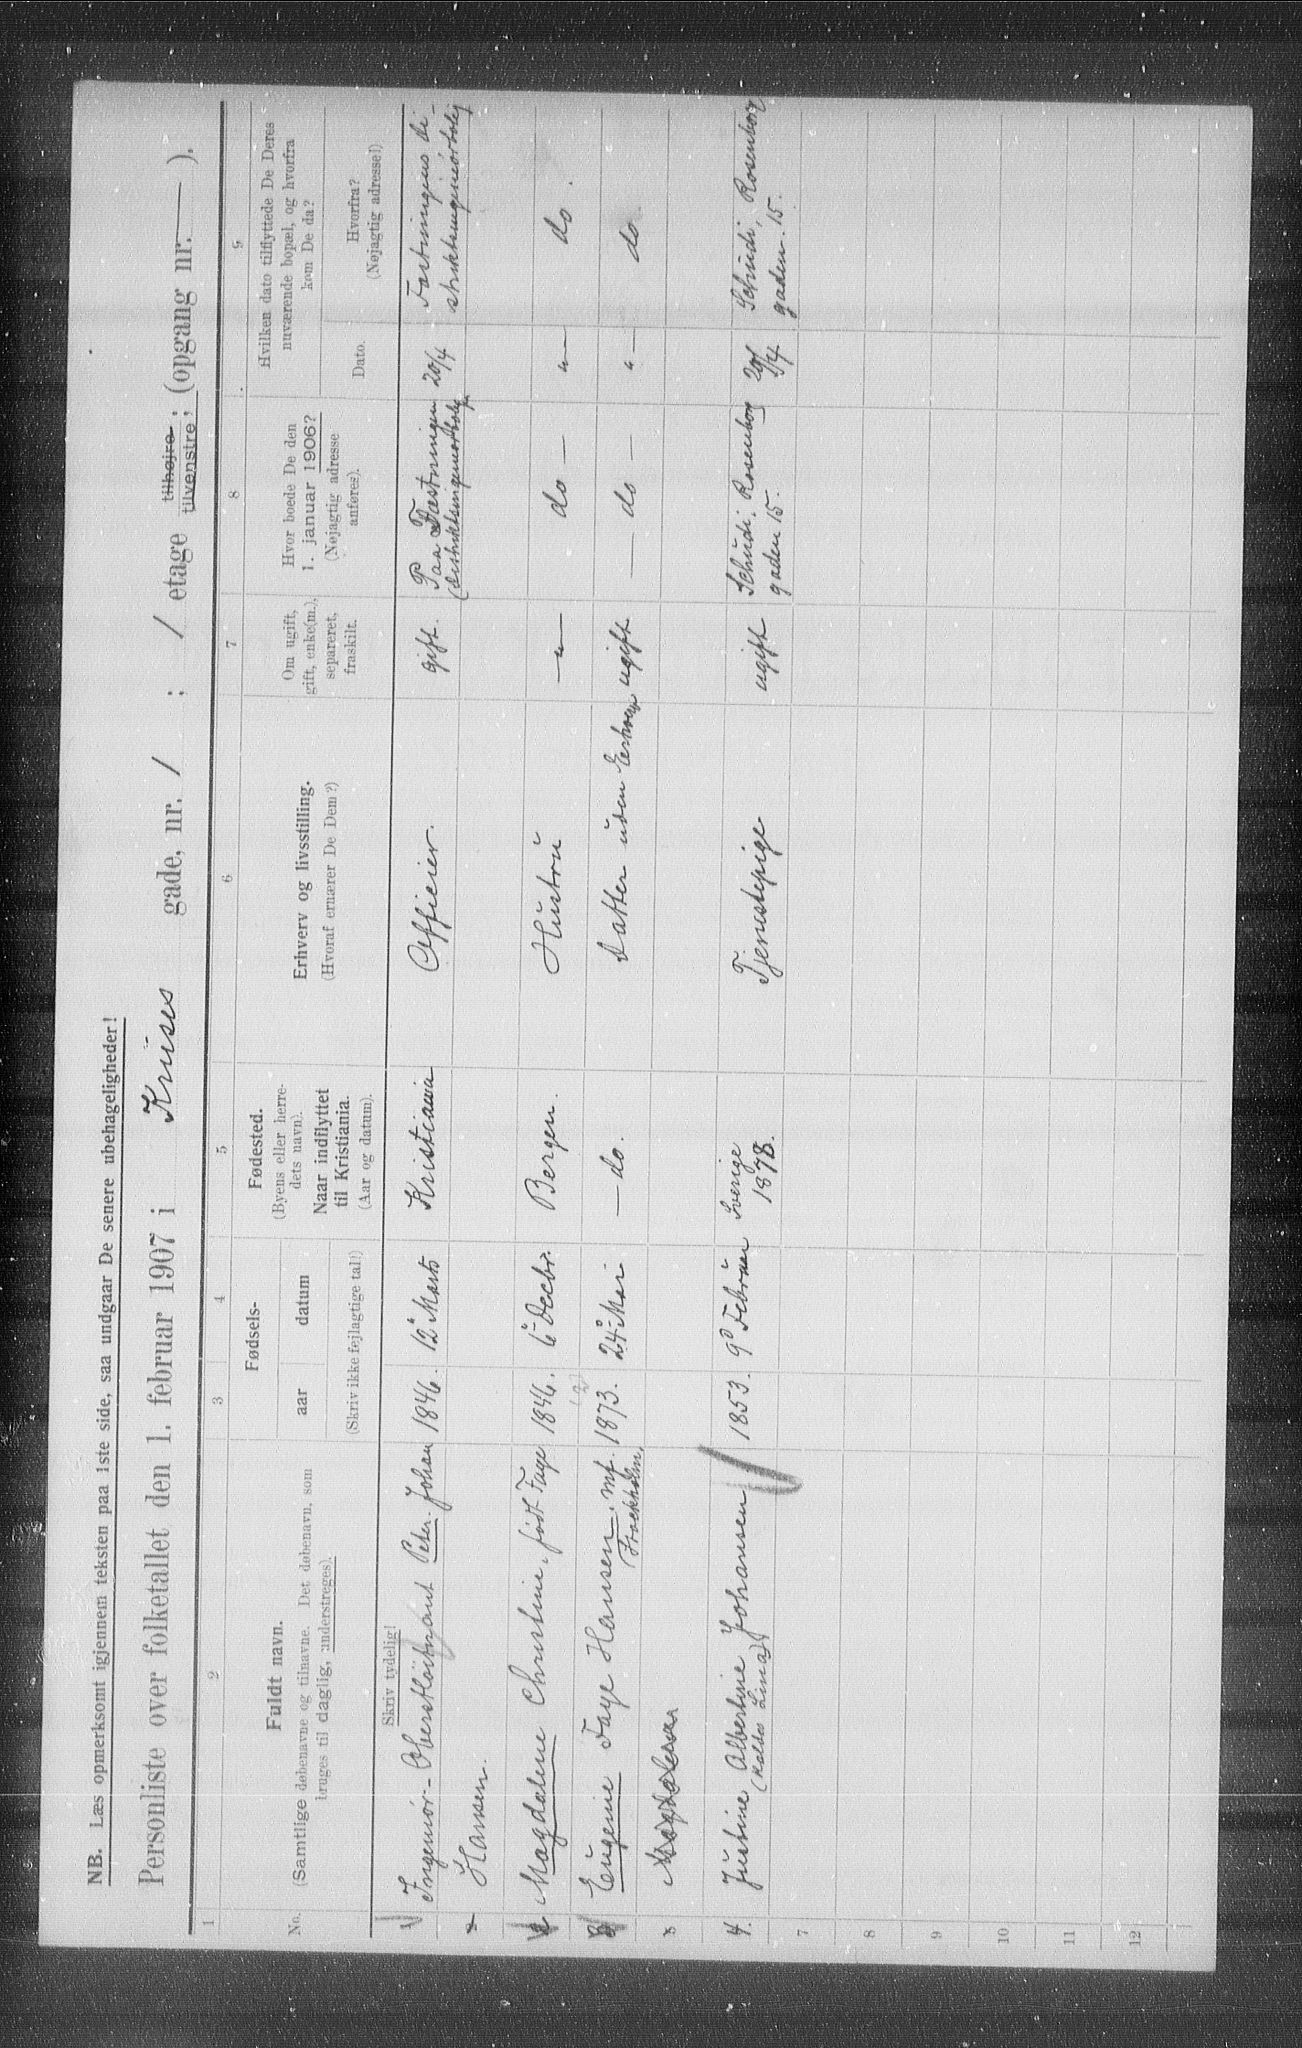 NB. Læs opmerksomt igjennem teksten paa 1ste side, saa undgaar De senere ubehageligheder!
Personliste over folketallet den 1. februar 1907 i Krüses gade, nr. 1 ; 1 etage tilhøjre ; tilvenstre; (opgang nr. — ).
1 2 3 4 5 6 7 8 9
No.
Fuldt navn.
(Samtlige døbenavne og tilnavne. Det døbenavn, som
bruges til daglig, understreges).
Fødsels-
aar datum
(Skriv ikke fejlagtige tal!)
Fødested.
(Byens eller herre-
dets navn).
Naar indflyttet
til Kristiania.
(Aar og datum).
Erhverv og livsstilling.
(Hvoraf ernærer De Dem?)
Om ugift,
gift, enke(m.),
separeret,
fraskilt.
Hvor boede De den
1. januar 1906?
(Nøjagtig adresse
anføres).
Hvilken dato tilflyttede De Deres
nuværende bopæl, og hvorfra
kom De da?
Dato.
Hvorfra?
(Nøjagtig adresse!)
Skriv tydelig!
1 Ingeniør-Oberstløitnant Peter Johan 1846. 12 Marts Kristiania Officier. gift. Paa Fæstningen 20/4 Fæstningens di-
Hansen. (distriktsingeniørbolig striktsingeniørbolig
Magdalene Christine, født Faye 1846. 6 Decbr. Bergen. Hustrü — " — do — " — do.
Eugenie Faye Hansen. 1873. 24 Mai — do. Datter uden Erhverv ugift — do — " — do.
4. Jüstine Albertine Johansen 1853. 9 Februar Sverige Tjenestepige ugift Schüdi, Rosenborg 20/4 Schüdi, Rosenborg
(kaldes Lina) 1878. gaden 15. gaden. 15.
7
8
9
10
11
12